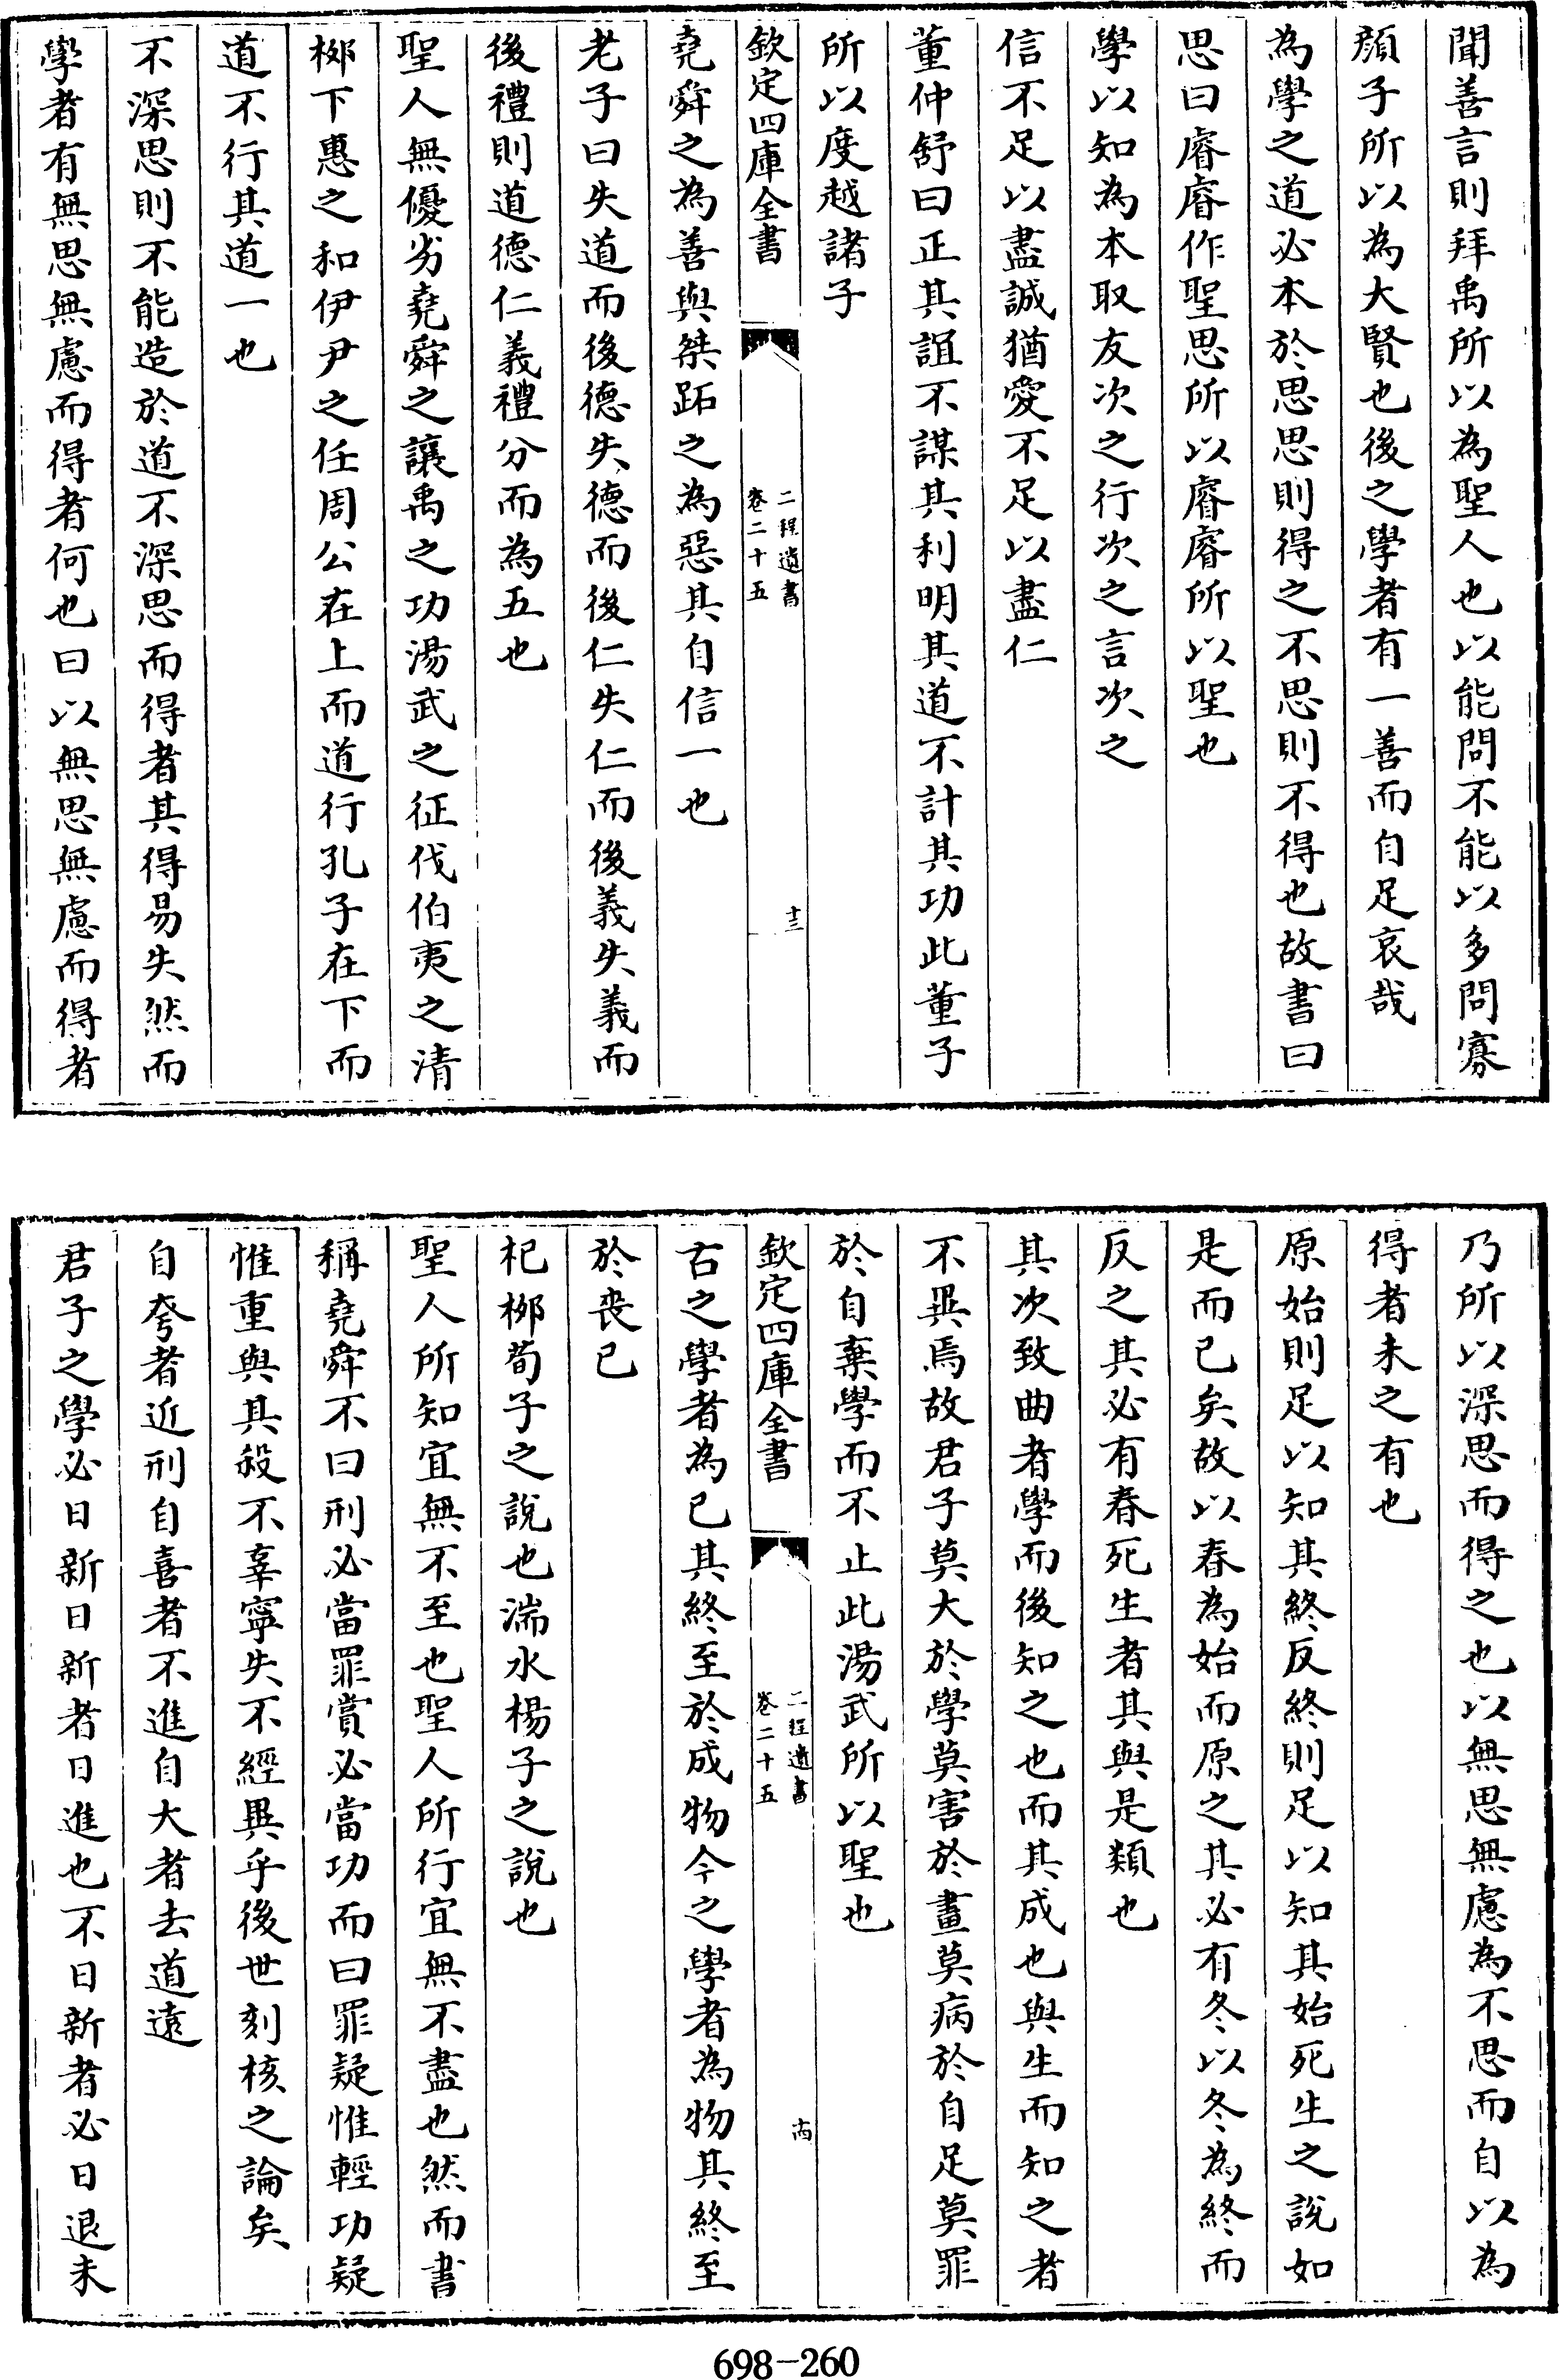 聞善言則拜禹所以為聖人也以能問不能以多問寡
顔子所以為大賢也後之學者有一善而自足哀哉
為學之道必本於思思則得之不思則不得也故書曰
思曰睿睿作聖思所以睿睿所以聖也
學以知為本取友次之行次之言次之
信不足以盡誠猶愛不足以盡仁
董仲舒曰正其誼不謀其利明其道不計其功此董子
所以度越諸子
欽定四庫全書
二程遺書
卷二十五
十三
堯舜之為善與桀跖之為惡其自信一也
老子曰失道而後德失德而後仁失仁而後義失義而
後禮則道德仁義禮分而為五也
聖人無優劣堯舜之讓禹之功湯武之征伐伯夷之清
桺下惠之和伊尹之任周公在上而道行孔子在下而
道不行其道一也
不深思則不能造於道不深思而得者其得易失然而
學者有無思無慮而得者何也曰以無思無慮而得者
乃所以深思而得之也以無思無慮為不思而自以為
得者未之有也
原始則足以知其終反終則足以知其始死生之說如
是而已矣故以春為始而原之其必有冬以冬為終而
反之其必有春死生者其與是類也
其次致曲者學而後知之也而其成也與生而知之者
不異焉故君子莫大於學莫害於畫莫病於自足莫罪
於自棄學而不止此湯武所以聖也
欽定四庫全書
二程遺書
卷二十五
十四
古之學者為已其終至於成物今之學者為物其終至
於喪已
杞桺荀子之說也湍水楊子之說也
聖人所知宜無不至也聖人所行宜無不盡也然而書
稱堯舜不曰刑必當罪賞必當功而曰罪疑惟輕功疑
惟重與其殺不辜寧失不經異乎後世刻核之論矣
自夸者近刑自喜者不進自大者去道遠
君子之學必日新日新者日進也不日新者必日退未
698-260